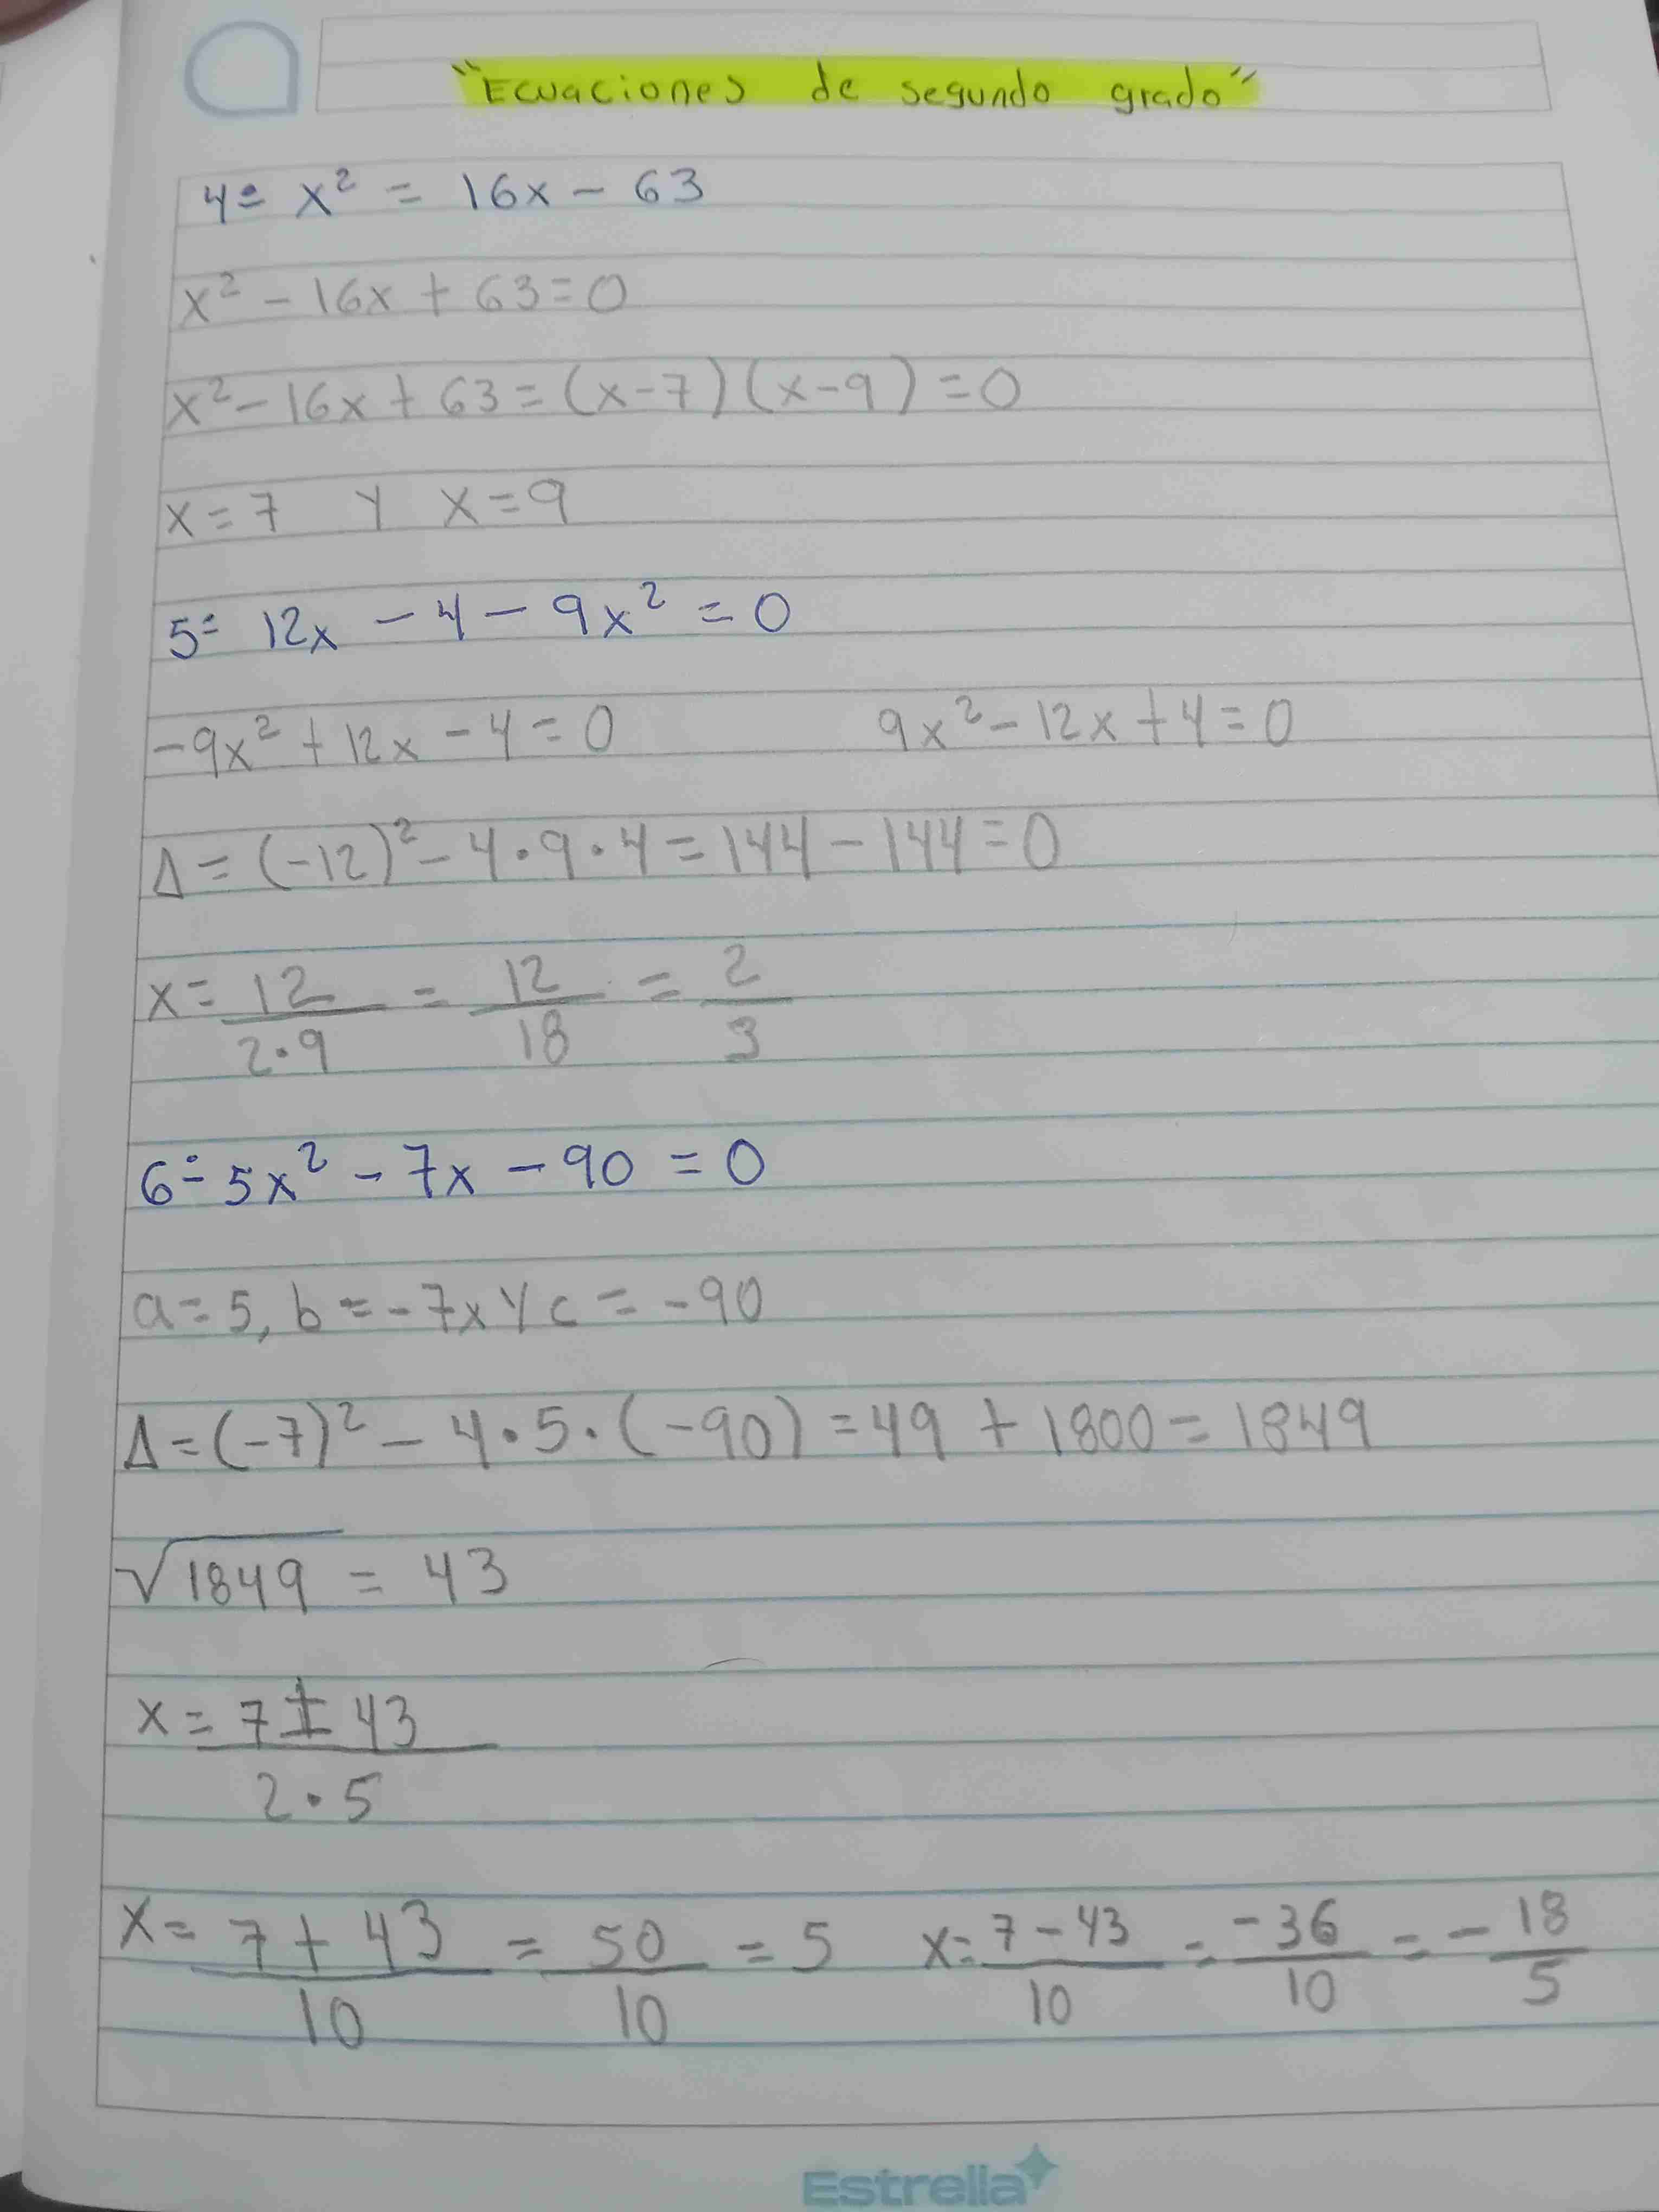 "Ecuaciones de segundo grado"
4= x² = 16x - 63
x² - 16x + 63 = 0
x² - 16x + 63 = (x-7)(x-9) = 0
x = 7 y x = 9
5= 12x - 4 - 9x² = 0
-9x² + 12x - 4 = 0 9x² - 12x + 4 = 0
Δ = (-12)² - 4·9·4 = 144 - 144 = 0
x = 12/2·9 = 12/18 = 2/3
6= 5x² - 7x - 90 = 0
a = 5, b = -7x y c = -90
Δ = (-7)² - 4·5·(-90) = 49 + 1800 = 1849
√1849 = 43
x = 7 ± 43/2·5
x = 7 + 43/10 = 50/10 = 5 x = 7 - 43/10 = -36/10 = -18/5
Estrella